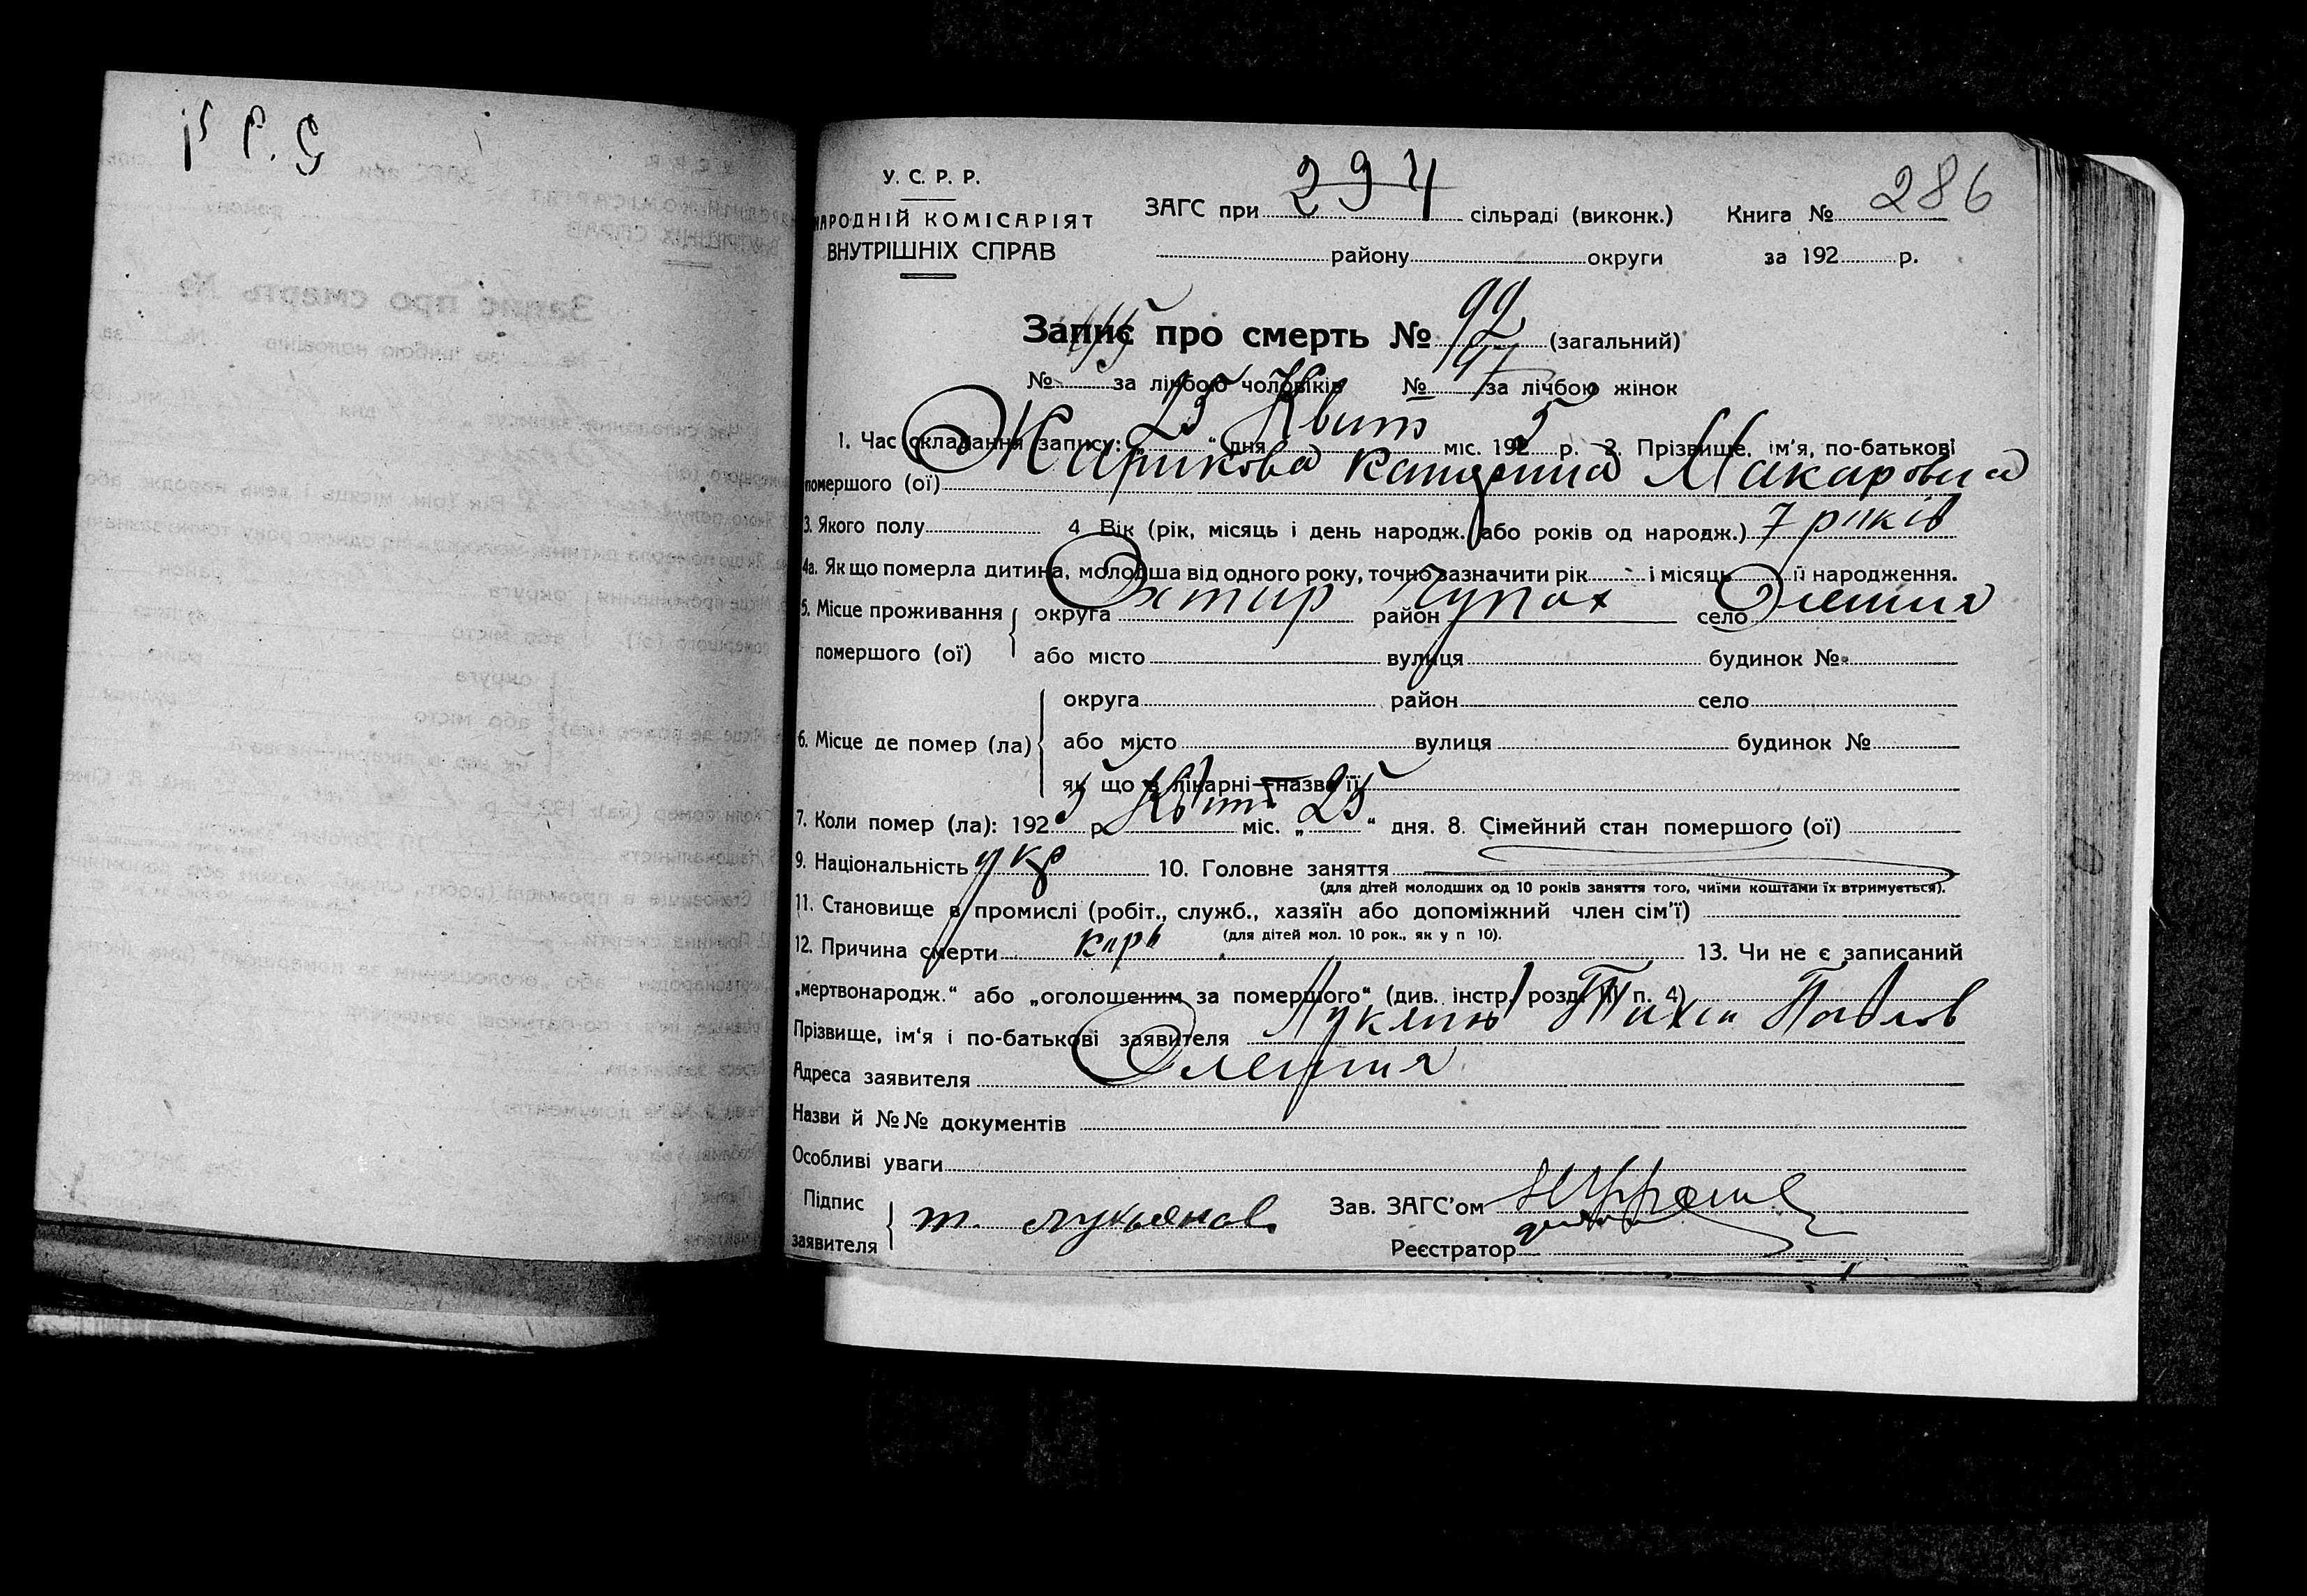 У. С. Р. Р.
НАРОДНІЙ КОМІСАРІЯТ
ВНУТРІШНІХ СПРАВ
ЗАГС при 294 сільраді (виконк.) Книга № 286
району округи за 192 р.
Запис про смерть № 99 (загальний)
№ за лічбою чоловіків № за лічбою жінок
1. Час складання запису: „25“ дня Квит міс. 1925 р. 2. Прізвище, ім'я, по-батькові
помершого (ої) Макаровна
3. Якого полу 4 Вік (рік, місяць і день народж. або років од народж.) 7 років
4а. Якщо померла дитина, молодша від одного року, точно зазначити рік і місяць її народження.
5. Місце проживання помершого (ої) округа Охтир район Чупах село Олешня
або місто вулиця будинок №
6. Місце де помер (ла) округа район село
або місто вулиця будинок №
як що в лікарні—назва її
7. Коли помер (ла): 1925 р Квит міс. „25“ дня. 8. Сімейний стан помершого (ої)
9. Національність укр 10. Головне заняття
(для дітей молодших од 10 років заняття того, чиїми коштами їх втримується).
11. Становище в промислі (робіт., служб., хазяїн або допоміжний член сім'ї)
(для дітей мол. 10 рок., як у п 10).
12. Причина смерти кирь 13. Чи не є записаний
„мертвонародж.“ або „оголошеним за помершого“ (див. інстр. розд. III п. 4)
Прізвище, ім'я і по-батькові заявителя Лукяню Тихон Павлов
Адреса заявителя Олешня
Назви й №№ документів
Особливі уваги
Підпис заявителя т. лукьянов
Зав. ЗАГС'ом
Реєстратор